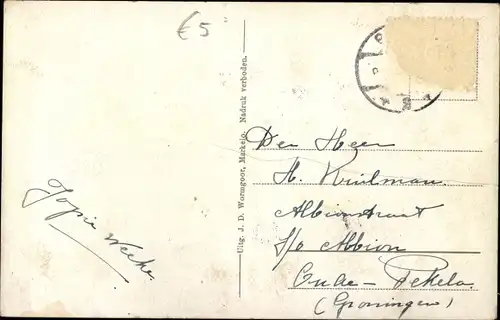 €5
Uitg. J. D. Wormgoor, Markelo. Nadruk verboden.
Jopie
Den Heer
H.
Albionstraat
s/o Albion
Oude-Pekela.
(Groningen)